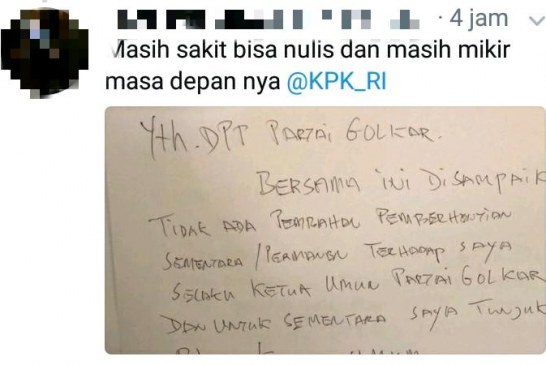 · 4 jam
Masih sakit bisa nulis dan masih mikir
masa depan nya @KPK_RI
Yth. DPT PARTAI GOLKAR.
BERSAMA INI DISAMPAIK
TIDAK ADA PEMBAHAN PEMBERHENTIAN
SEMENTARA/PERMANEN TERHADAP SAYA
SELAKU KETUA UMUM PARTAI GOLKAR
DAN UNTUK SEMENTARA SAYA TUNJUK